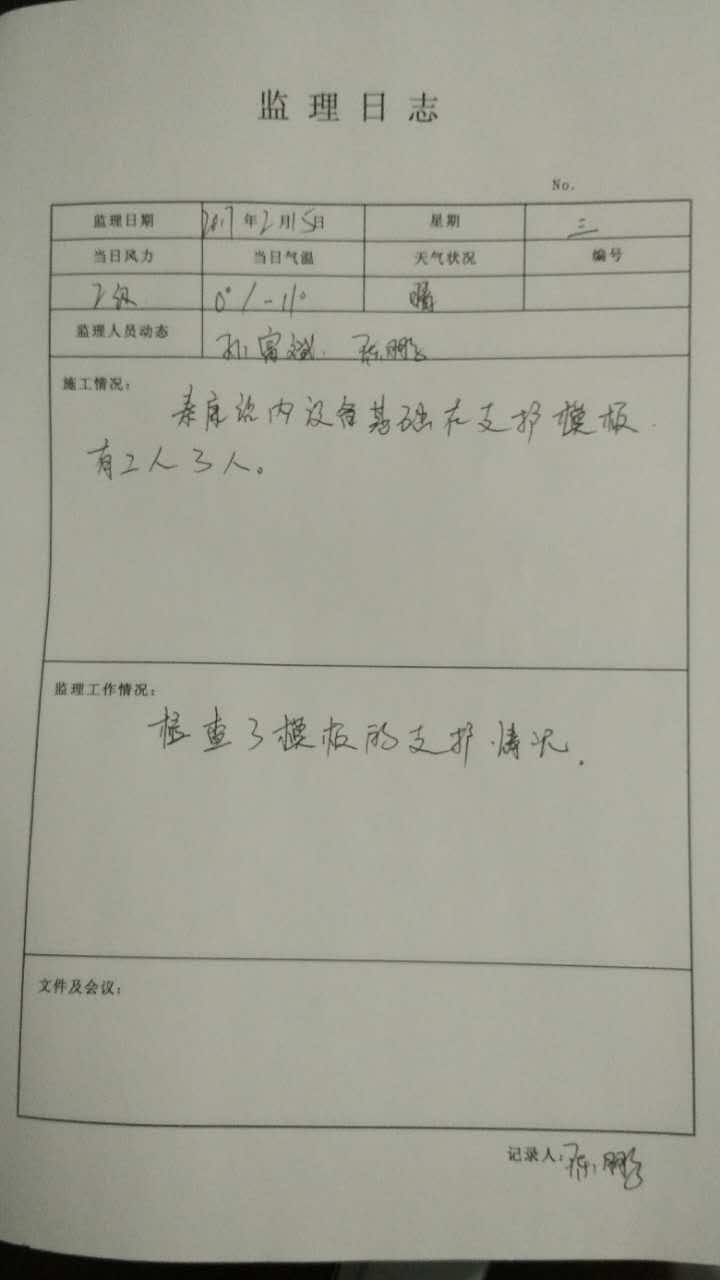 监理日志
No.
监理日期 2017年2月15日 星期 三
当日风力 当日气温 天气状况 编号
2级 0°/-11° 晴
监理人员动态 孙富斌. 陈鹏
施工情况:
内设备基础在支护模板.
有工人3人。
监理工作情况:
检查了模板的支护情况.
文件及会议:
记录人: 陈鹏